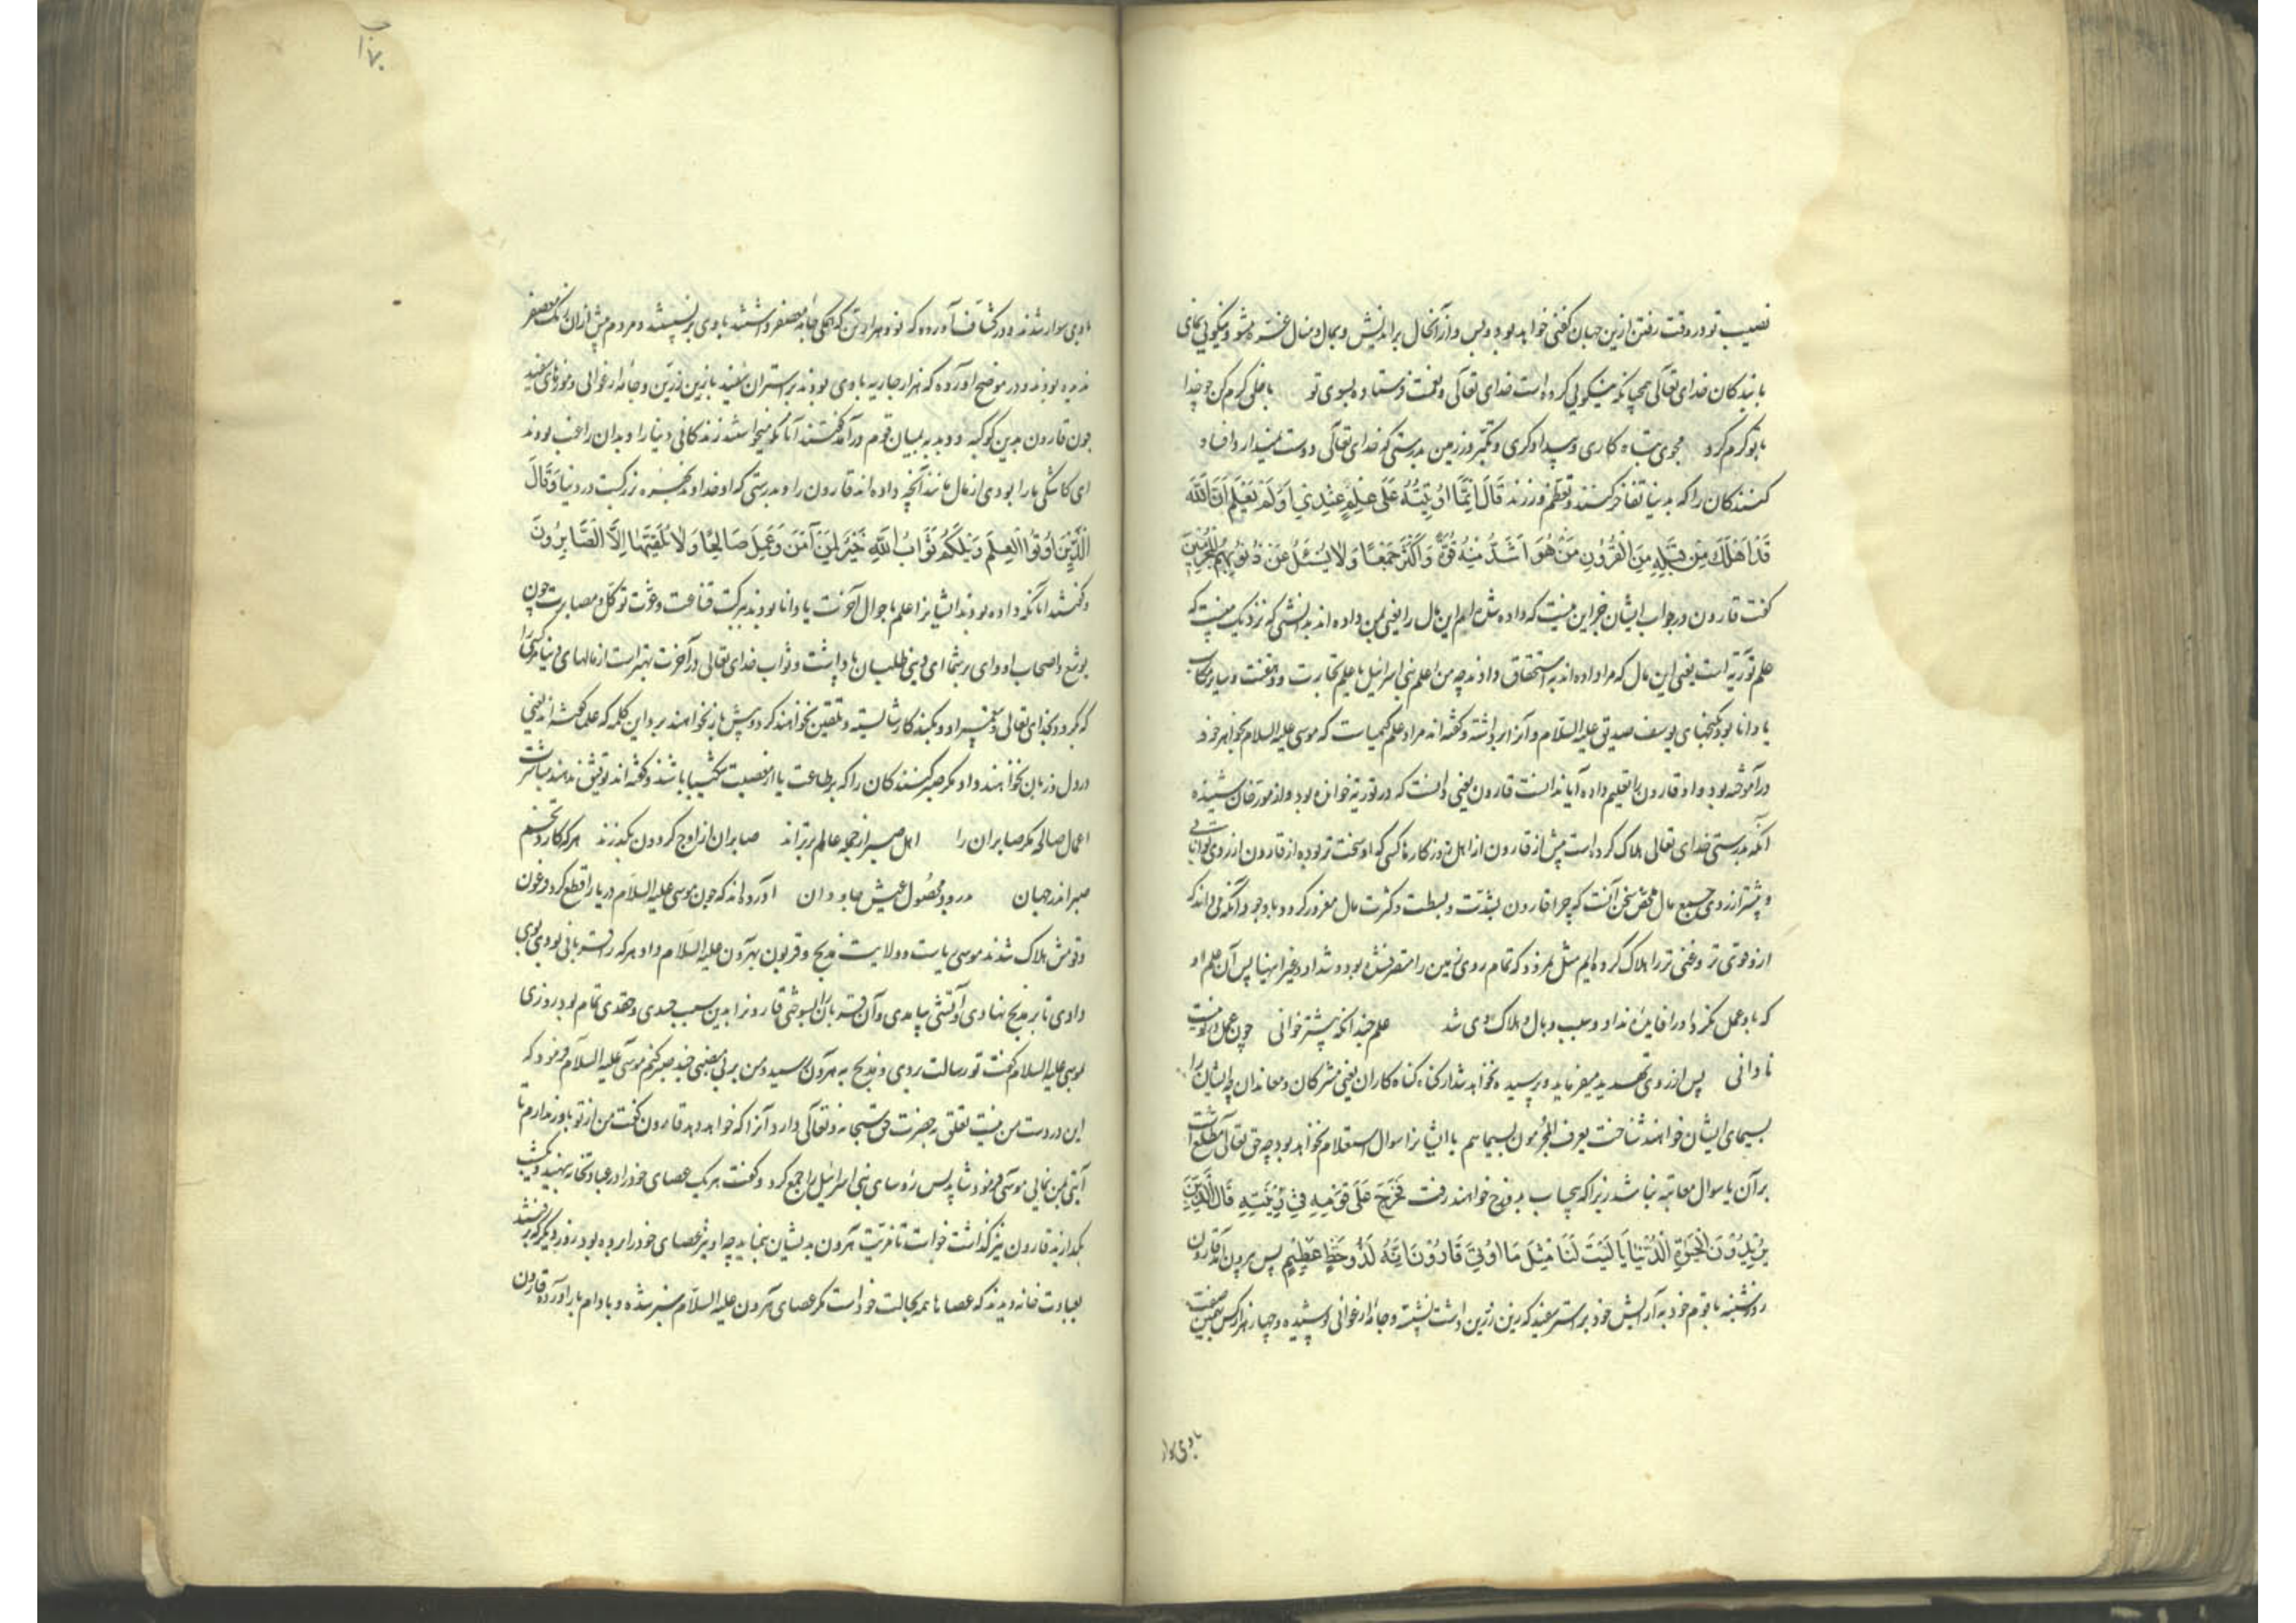 نصیب تو در وقت رفتن ازین جهان کفنی خواهد بود و بس و از آن حال براندیش و بمال و منال غره مشو و نیکویی نمای
با بندکان خدای تعالی همچنانکه نیکویی کرده است خدای تعالی و نعمت فرستاده بسوی تو با خلق کرم کن چو خدا
با تو کرم کرد مجوی تباه کاری و بیدادکری و تکبر در زمین بدرستی که خدای تعالی دوست نمیدارد افساد
کنندکان را که بدنیا تفاخر کنند و تعظم ورزند قَالَ اِنَّمَا اُوتِیتُهُ عَلَی عِلْمٍ عِنْدِی اَوَلَمْ یَعْلَمْ اَنَّ اللّٰهَ
قَدْ اَهْلَكَ مِنْ قَبْلِهِ مِنَ الْقُرُونِ مَنْ هُوَ اَشَدُّ مِنْهُ قُوَّةً وَاَکْثَرُ جَمْعًا وَلَا یُسْئَلُ عَنْ ذُنُوبِهِمُ الْمُجْرِمُونَ
کفت قارون در جواب ایشان جز این نیست که داده شده ام این مال را یعنی بمن داده اند بدانشی که نزدیک منست که
علم توریة است یعنی این مال که مرا داده اند به استحقاق دادند چه من اعلم بنی اسرائیل یا علم تجارت و دهقنت و سایر مکاسب
یا دانا بود بکنجهای یوسف صدیق علیه السلام و آنرا برداشته و کفته اند مراد علم کیمیاست که موسی علیه السلام بخواهر خود
درآموخته بود و او قارون را تعلیم داده آیا ندانست قارون یعنی دانست که در توریة خوانده بود و از مورخان شنیده
آنکه بدرستی خدای تعالی هلاک کرده است پیش از قارون از اهل روزکارها کسی که او سخت تر بوده از قارون از روی توانایی
و بیشتر از روی جمیع مال ملخص سخن آنست که چرا قارون بشدت و بسطت و کثرت مال مغرور کردد با وجود آنکه می داند که
ازو قوی تر و غنی تر را هلاک کرده ایم مثل نمرود که تمام روی زمین را متصرف شده بود و شداد و غیر اینها پس آن علم او
که با و عمل نکرد او را فایده نداد و سبب وبال و هلاک وی شد علم چندانکه بیشتر خوانی چون عمل در تو نیست
نادانی پس از روی تهدید میفرماید و پرسیده نخواهد شد از کناه کناه کاران یعنی مشرکان و معاندان چه ایشان را
بسیمای ایشان خواهند شناخت یعرف المجرمون بسیماهم یا ایشانرا سوال استعلام نخواهد بود چه حق تعالی مطلع است
بر آن یا سوال معاتبه نباشد زیرا که بیحساب بدوزخ خواهند رفت فَخَرَجَ عَلَی قَوْمِهِ فِی زِینَتِهِ قَالَ الَّذِینَ
یُرِیدُونَ الْحَیٰوةَ الدُّنْیَا یَا لَیْتَ لَنَا مِثْلَ مَا اُوتِیَ قَارُونُ اِنَّهُ لَذُو حَظٍّ عَظِیمٍ پس بیرون آمد قارون
روز شنبه با قوم خود به آرایش خود بر استر سفید که زین زرین داشت نشسته و جامه ارغوانی پوشیده و چهار هزار کس بهمین صفت
با وی سوار
با وی سوار شدند و در کشاف آورده که نود هزار تن که همکی جامه معصفر داشتند با وی برنشستند و مردم پیش از آن رنک معصفر
ندیده بودند و در موضح آورده که هزار جاریه با وی بودند بر استران سفید با زین زرین و جامه ارغوانی و موزهای سفید
چون قارون بدین کوکبه و دبدبه بمیان قوم درآمد کفتند آنانکه میخواستند زندکانی دنیا را و بدان راغب بودند
ای کاشکی ما را بودی از مال مانند آنچه داده اند قارون را بدرستی که او خداوند بهره بزرکست در دنیا وَقَالَ
الَّذِینَ اُوتُوا الْعِلْمَ وَیْلَکُمْ ثَوَابُ اللّٰهِ خَیْرٌ لِمَنْ آمَنَ وَعَمِلَ صَالِحًا وَلَا یُلَقّٰیهَا اِلَّا الصَّابِرُونَ
و کفتند آنانکه داده بودند ایشانرا علم باحوال آخرت یا دانا بودند ببرکت قناعت و عزت توکل و مصابرت چون
یوشع و اصحاب او وای بر شما ای دنیی طلبان و ثواب خدای تعالی در آخرت بهتر است از مالهای دنیا مر کسی را
که بکرود بخدای تعالی و پیغمبر او و بکند کار شایسته و تلقین نخواهند کرد و پیش باز نخواهند برد این کلمه که علما کفته اند یعنی
در دل و زبان نخواهند داد مکر صبر کنندکان را که بر طاعت یا از معصیت شکیبا باشند و کفته اند توفیق ندهند مباشرت
اعمال صالحه مکر صابران را اهل صبر از جمله عالم برترند صابران از اوج کردون بکذرند هر که کارد تخم
صبر اندر جهان درود محصول عیش جاودان آورده اند که چون موسی علیه السلام دریا را قطع کرد و فرعون
و قومش هلاک شدند موسی ریاست و ولایت مذبح و قربون بهرون علیه السلام داد و هر که را قربانی بودی بوی
دادی تا بر مذبح نهادی و آتشی بیامدی و آن قربان را بسوختی قارونرا بدین سبب حسدی و حقدی تمام بود روزی
موسی علیه السلام کفت تو رسالت بردی و مذبح به هرون رسید و من بر بی نصیبی چند صبر کنم موسی علیه السلام فرمود که
این در دست من نیست تعلق به حضرت حق سبحانه و تعالی دارد آنرا که خواهد دهد قارون کفت من از تو باور ندارم تا
آیتی بمن نمایی موسی فرمود شاید پس رؤسای بنی اسرائیل را جمع کرد و کفت هر یک عصای خود را در عبادتخانه بنهید و یکشب
بکذارید قارون نیز کذاشت خواست تا مزیت هرون بدیشان بنماید چه او نیز عصای خود را برده بود روز دیکر که برفتند
بعبادت خانه دیدند که عصاها همه بحالت خود است مکر عصای هرون علیه السلام سبز شده و بادام بار آورده قارون